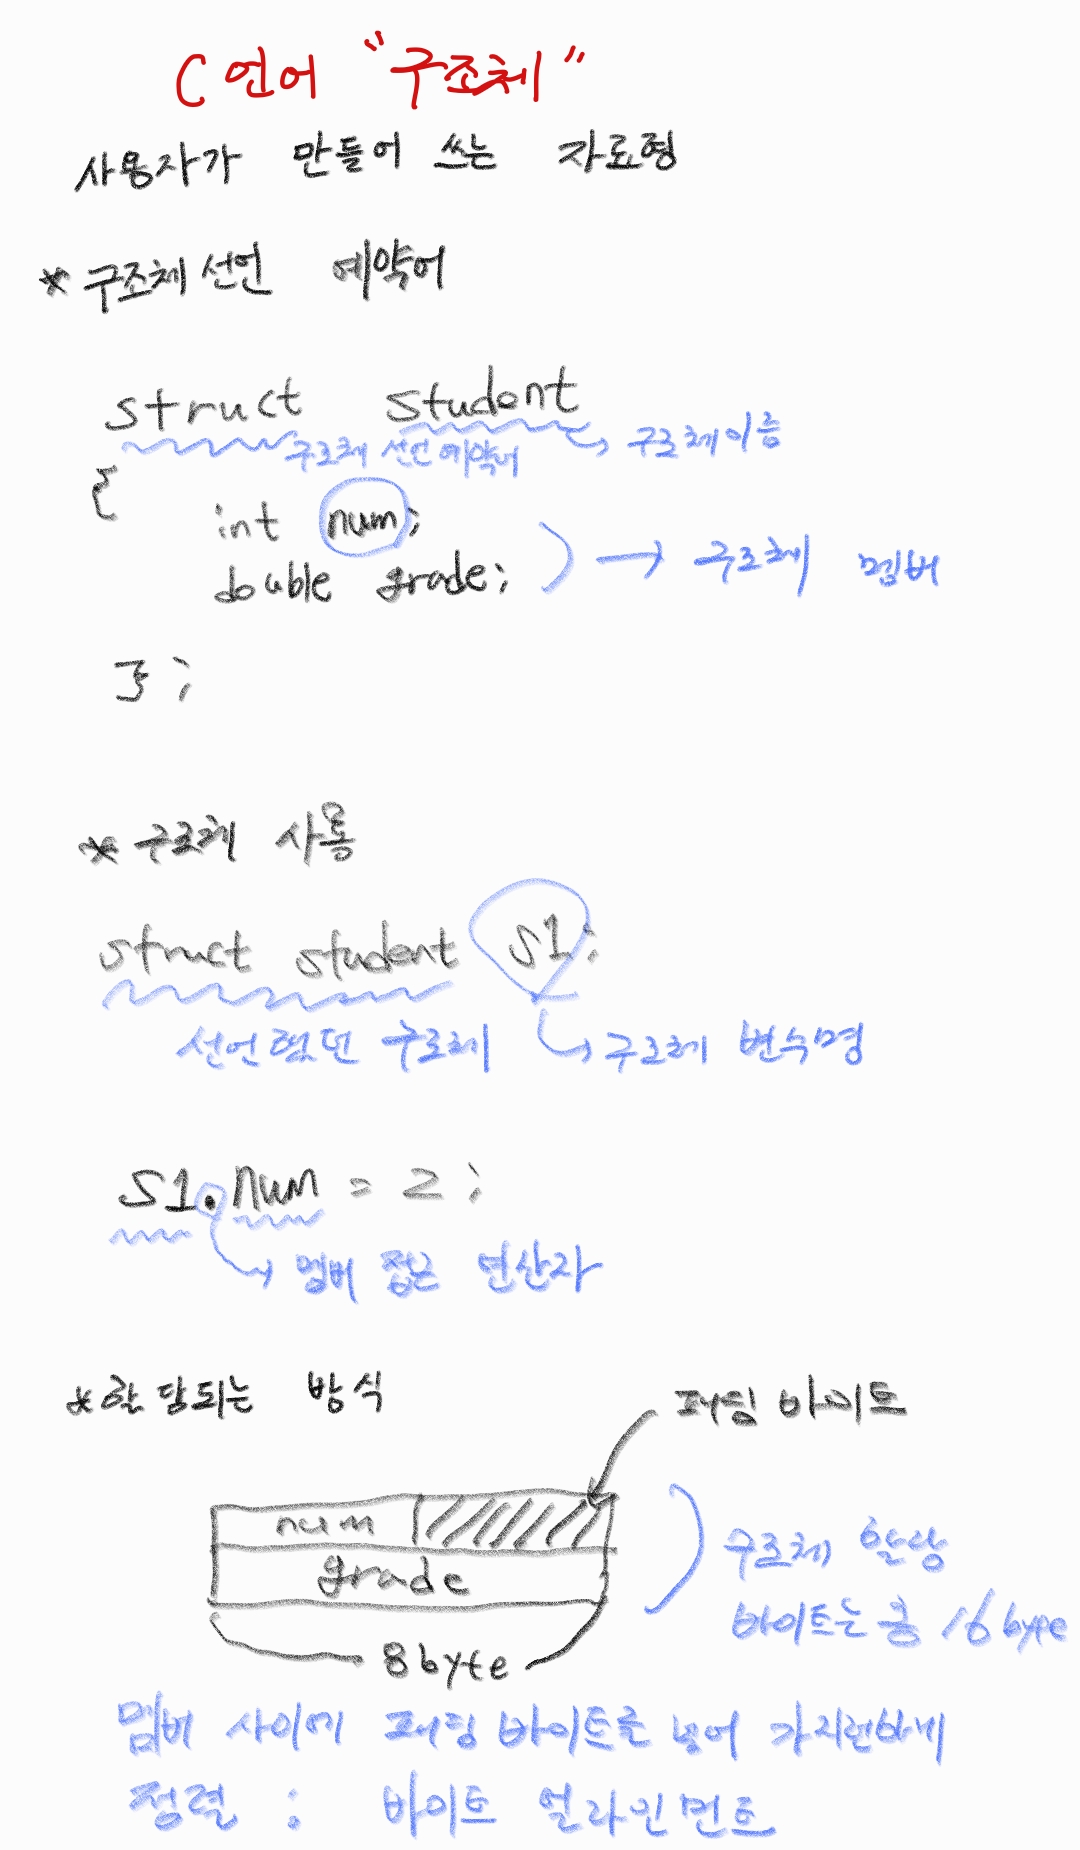 C 언어 "구조체"
사용자가 만들어 쓰는 자료형
* 구조체 선언 예약어
struct student
구조체 선언 예약어 → 구조체이름
{
int num;
double grade;
→ 구조체 멤버
};
* 구조체 사용
struct student s1;
선언했던 구조체 → 구조체 변수명
s1.num = 2;
→ 멤버 접근 연산자
* 할당되는 방식
패딩 바이트
num
grade
구조체 할당
바이트는 총 16 byte
8 byte
멤버 사이에 패딩 바이트를 넣어 가지런하게
정렬 : 바이트 얼라인먼트